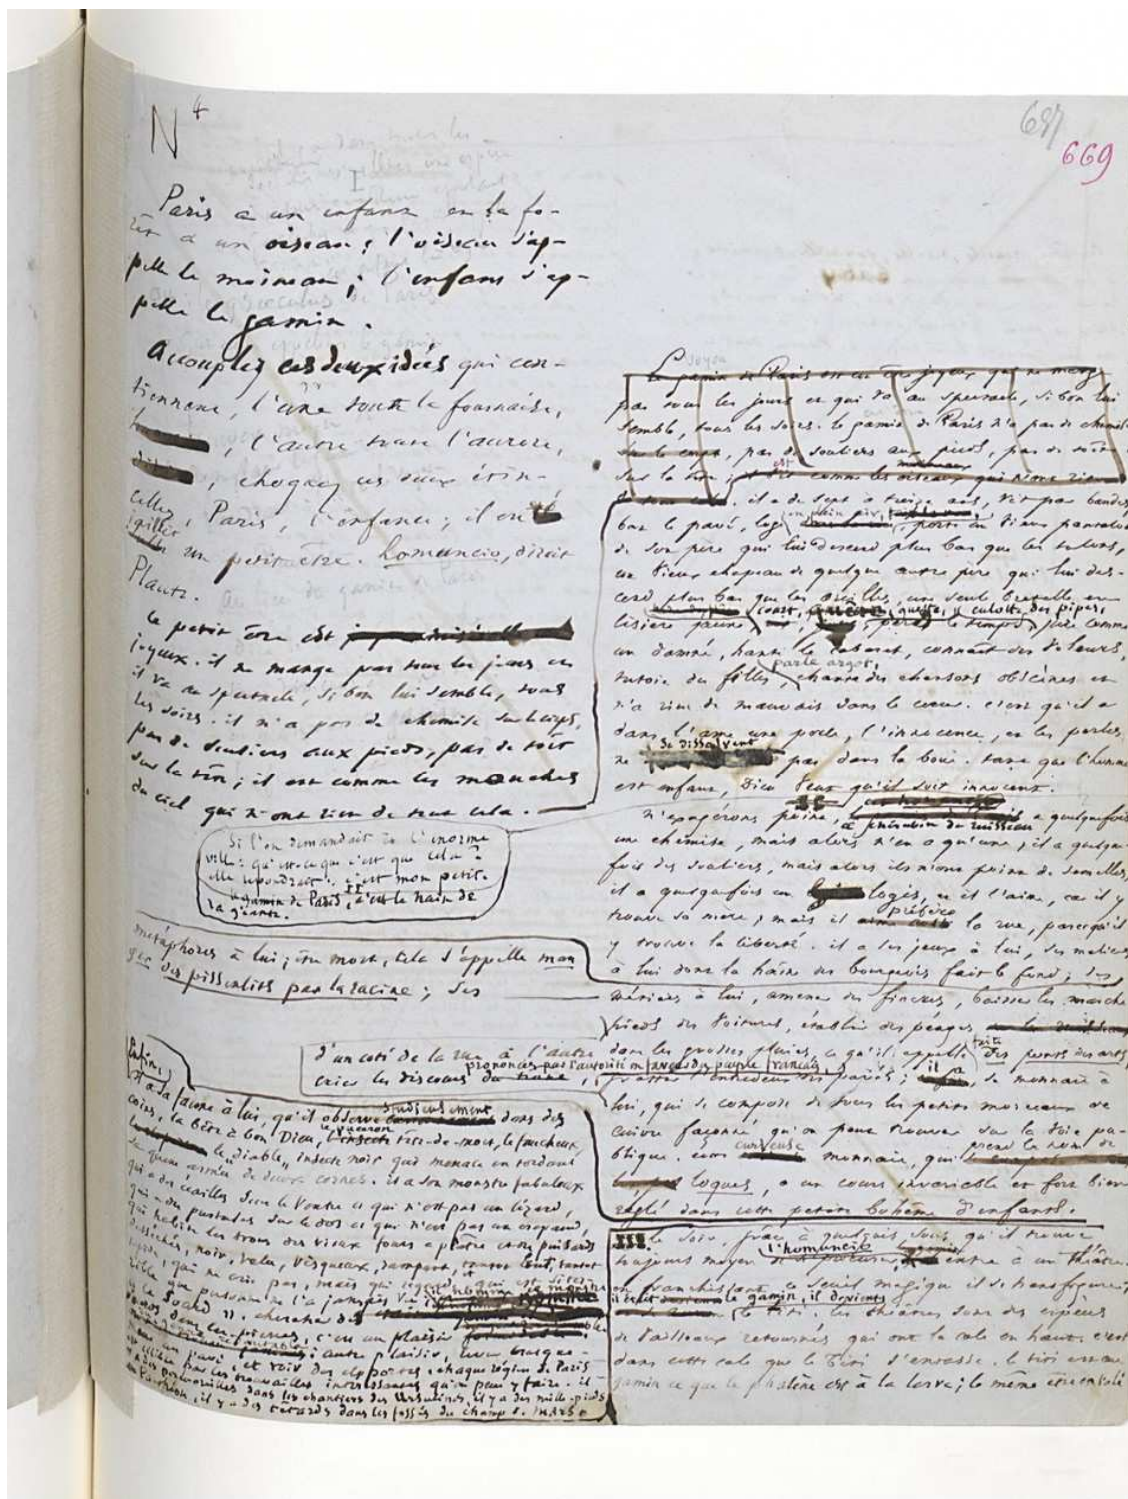 N 4
697
669
I
Paris a un enfant et la fo-
rêt a un oiseau ; l'oiseau s'ap-
pelle le moineau ; l'enfant s'ap-
pelle le gamin.
Accouplez ces deux idées qui con-
tiennent, l'une toute la fournaise,
, l'autre toute l'aurore,
, choquez ces deux étin-
celles, Paris, l'enfance ; il en
jaillit un petit être. homuncio, dirait
Plaute.
Ce petit être est
joyeux. il ne mange pas tous les jours et
il va au spectacle, si bon lui semble, tous
les soirs. il n'a pas de chemise sur le corps,
pas de souliers aux pieds, pas de toit
sur la tête ; il est comme les mouches
du ciel qui n'ont rien de tout cela.
Si l'on demandait à l'énorme
ville : qu'est-ce que c'est que cela ?
elle répondrait : c'est mon petit.
II
le gamin de Paris, c'est le nain de
la géante.
métaphores à lui ; être mort, cela s'appelle man
ger des pissenlits par la racine ; ses
d'un côté de la rue à l'autre
prononcés par l'autorité en faveur du peuple français,
crier les discours
Enfin,
il a sa faune à lui, qu'il observe studieusement dans des
coins, la bête à bon Dieu, le puceron tête-de-mort, le faucheux,
le "diable", insecte noir qui menace en tordant
sa queue armée de deux cornes. il a son monstre fabuleux
qui a des écailles sous le ventre et qui n'est pas un lézard,
qui a des pustules sur le dos et qui n'est pas un crapaud,
qui habite les trous des vieux fours à chaux et des puisards
desséchés, noir, velu, visqueux, rampant, tantôt lent, tantôt
rapide, qui ne crie pas, mais qui regarde, et qui est si ter-
rible que personne ne l'a jamais vu ; il nomme ce monstre
"le sourd". chercher des
sourds dans les pierres, c'est un plaisir
autre plaisir, lever brusque-
ment un pavé, et voir des cloportes. chaque région de Paris
est célèbre par les trouvailles intéressantes qu'on peut y faire. il
y a des perce-oreilles dans les chantiers des Ursulines, il y a des mille-pieds
au Panthéon, il y a des têtards dans les fossés du champ de mars.
joyeux
Le gamin de Paris est un être joyeux qui ne mange
pas tous les jours et qui va au spectacle, si bon lui
semble, tous les soirs. le gamin de Paris n'a pas de chemise
sur le corps, pas de souliers aux pieds, pas de toit
sur la tête ; il est comme les oiseaux qui n'ont rien
de tout cela. il a de sept à treize ans, vit par bandes,
bat le pavé, loge en plein air, porte un vieux pantalon
de son père qui lui descend plus bas que les talons,
un vieux chapeau de quelque autre père qui lui des-
cend plus bas que les oreilles, une seule bretelle en
lisière jaune, court, guette, quête, perd le temps, culotte des pipes, jure comme
un damné, hante le cabaret, connaît des voleurs,
tutoie des filles, parle argot, chante des chansons obscènes et
n'a rien de mauvais dans le coeur. c'est qu'il a
dans l'âme une perle, l'innocence, et les perles
ne se dissolvent pas dans la boue. tant que l'homme
est enfant, Dieu veut qu'il soit innocent.
II
N'exagérons point, le chérubin du ruisseau a quelquefois
une chemise, mais alors il n'en a qu'une ; il a quelque-
fois des souliers, mais alors ils n'ont point de semelles,
il a quelquefois un logis, et il l'aime, car il y
trouve sa mère ; mais il préfère la rue, parce qu'il
y trouve la liberté. il a ses jeux à lui, ses malices
à lui dont la haine des bourgeois fait le fond ; ses
métiers à lui, amener des fiacres, baisser les marche
pieds des voitures, établir des péages
dans les grosses pluies, ce qu'il appelle faire des ponts des arts,
gratter l'entredeux des pavés ; il a sa monnaie à
lui, qui se compose de tous les petits morceaux de
cuivre façonné qu'on peut trouver sur la voie pu-
blique. cette curieuse monnaie, qui prend le nom de
loques, a un cours invariable et fort bien
réglé dans cette petite bohème d'enfants.
III. le soir, grâce à quelques sous qu'il trouve
toujours moyen de se procurer, l'homuncio entre à un théâtre.
en franchissant ce seuil magique il se transfigure ;
il était le gamin, il devient
le titi. les théâtres sont des espèces
de vaisseaux retournés qui ont la cale en haut. c'est
dans cette cale que le titi s'entasse. le titi est au
gamin ce que la phalène est à la larve ; le même être envolé